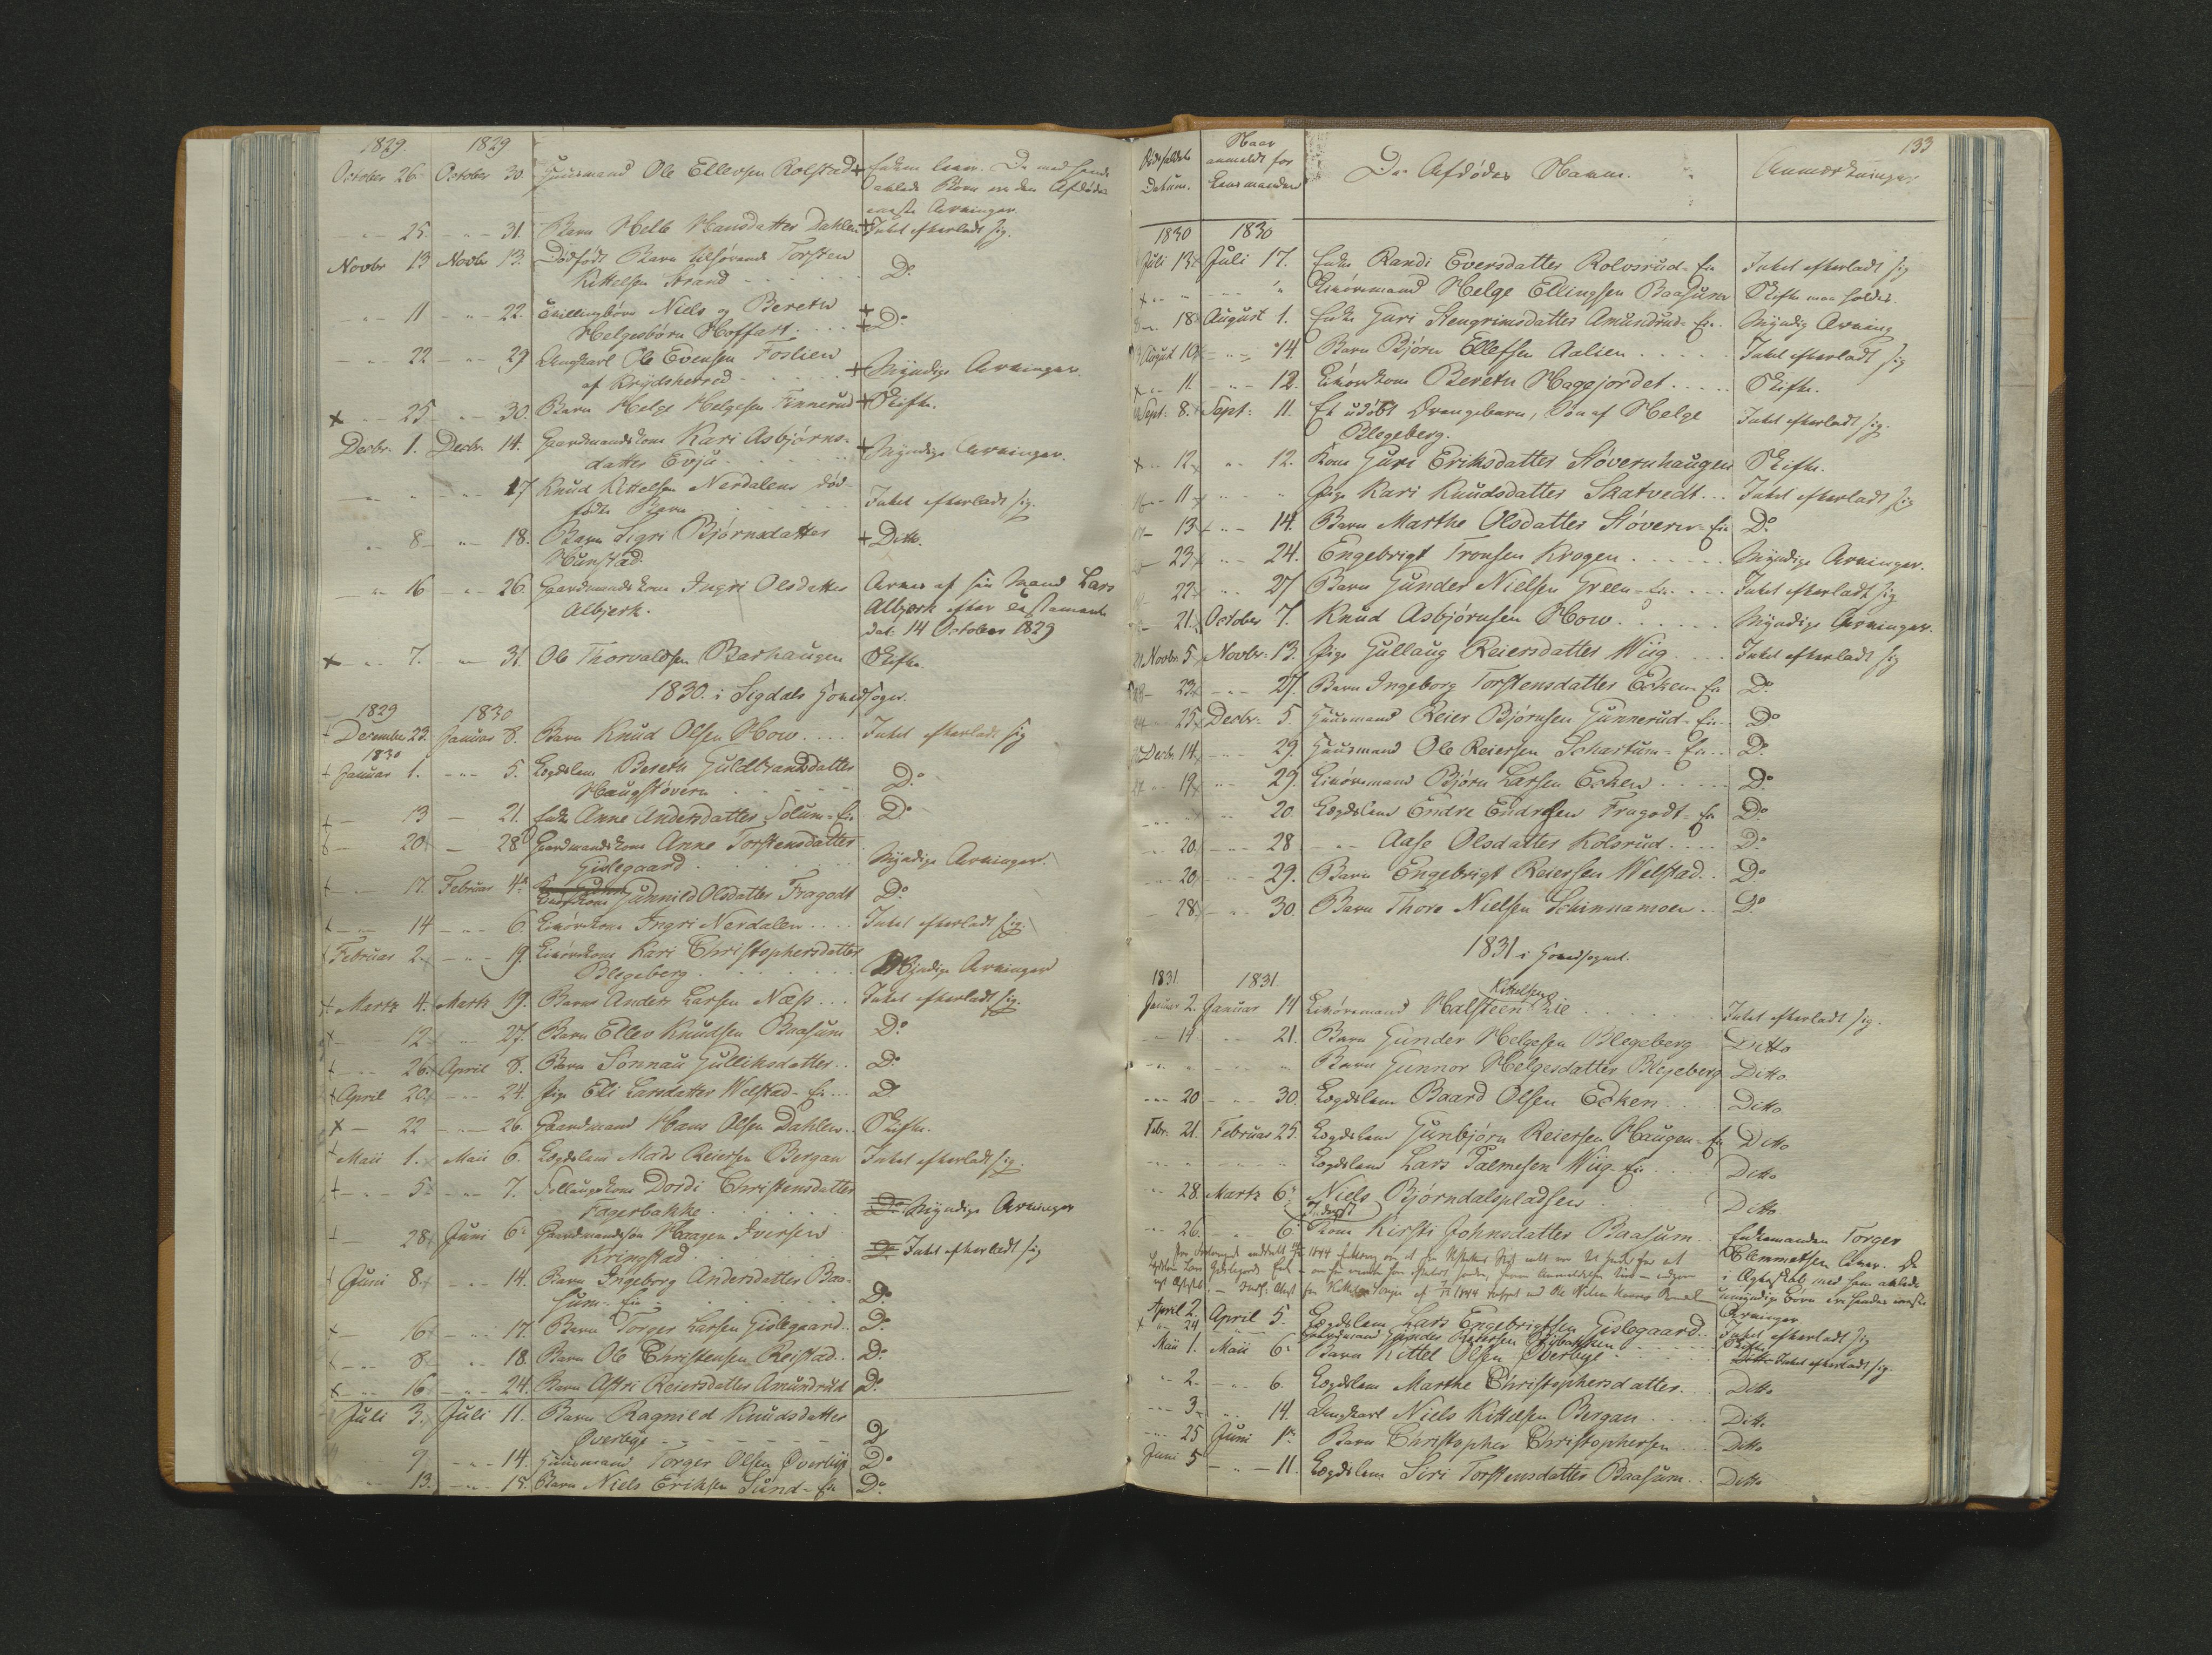 1829. 1829
October 26. October 30 Huusmand Ole Ellevsen Rolstad + Enken lever. De med hende
avlede Børn ere den Afdødes
eneste Arvinger
- " - 25. - " - 31. Barn Helle Hansdatter Dahlen + Intet efterladt sig.
Novbr 13 Novbr 13. Dødfødt Barn tilhørende Torsten
Kittelsen Strand - - - Do
- " - 11 - " - 22. Tvillingbørn Niels og Berethe
Helgesbørn Hoffart. . . . + Do
- " - 22 - " - 29 Ungkarl Ole Evensen Foslien
af Krydsherred - - - + Myndige Arvinger.
x - " - 25 - " - 30. Barn Helge Helgesen Finnerud + Skifte.
Decbr. 1. Decbr. 14. Gaardmandskone Kari Asbjørns-
datter Evju - - - + Myndige Arvinger.
- " - " - " - 17 Knud Kittelsen Nerdalens død-
fødte Barn - - - Intet efterladt sig.
- " - 8 - " - 18. Barn Sigri Bjørnsdatter + Ditto.
Hunstad.
- " - 16 - " - 26. Gaardmandskone Ingri Olsdatter Arves af sin Mand Lars
Albjerk. Albjerk efter Testamente
dat. 14 October 1829
x - " - 7. - " - 31. Ole Thorvaldsen Barhaugen Skifte.
1830. i Sigdals Hovedsogn.
1829 1830
+ December 23. Januar 8. Barn Knud Olsen How. . . . Intet efterladt sig
1830
+ Januar 1. - " - 5. Lægdslem Bereth Guldbrandsdatter
Haugstøvern - - - Do
+ - 13 - 21. Enke Anne Andersdatter Solum-Eie Do
+ - 20 - 28 Gaardmandskone Anne Torstensdatter
Gislegaard - - - Myndige Arvinger.
+ - " - 17 Februar 4. Gunnild Olsdatter Fragodt Do
+ - " - 14 - " - 6. Livørskone Ingri Nerdalen . . . . Intet efterladt sig.
+ Februar 2. - " - 19. Livørskone Kari Christophersdatter
Blegeberg . . . . Myndige Arvinger
+ Marts 4. Marts 19. Barn Anders Larsen Næss . . . Intet efterladt sig.
x - 12 - 27. Barn Ellev Knudsen Baasum Do
+ - " - 26. April 8. Barn Sønnau Gulliksdatter . . Do
+ April 20. - " - 24. Pige Eli Larsdatter Welstad-Eie . . . Do
x - 22 - " - 26. Gaardmand Hans Olsen Dahlen. . Skifte.
+ Maii 1. Maii 6. Lægdslem Mads Reiersen Bergan Intet efterladt sig.
+ - " - 5. - " - 7. Follaugskone Dordi Christensdatter
Fagerbakke . . . . Do Myndige Arvinger
+ - 28. Juni 6. Gaardmandssøn Haagen Iversen
Kringstad . . . Do Intet efterladt sig
+ Juni 8. - " - 14. Barn Ingeborg Andersdatter Baa-
sum-Eie - . . . . Do
x - 16 - " - 17. Barn Torger Larsen Gislegaard. . Do
x - " - 8 - " - 18. Barn Ole Christensen Reistad. . Do
x - " - 16 - " - 24. Barn Astri Reiersdatter Amundrud Do
Juli 3. Juli 11. Barn Ragnild Knudsdatter
Øverbye - - - - Do
9 - " - 14. Huusmand Torger Olsen Øverbye Do
- " - 13. - " - 15. Barn Niels Eriksen Sund-Eie Do
133
Dødsfaldets
Datum.
Naar
anmeldt for
Lensmanden
De Afdødes Navne. Anmærkninger
1830 1830
Juli 13. Juli 17. Enke Randi Eversdatter Rolvsrud-Eie Intet efterladt sig
x - " - " - " - " Livøresmand Helge Ellingsen Baasum Skifte maa holdes.
- " - 18 August 1. Enke Guri Stengrimsdatter Amundrud-Eie. Myndig Arving
August 10 - " - 14. Barn Bjørn Ellefsen Aalien . . . . Intet efterladt sig
x - " - 11 - " - 12. Livørskone Berethe Hagejordet . . . . Skifte.
Sept: 8. Sept: 11. Et udøbt Drengebarn, Søn af Helge Intet efterladt sig.
Blegeberg.
x - " - 12 - " - 12. Kone Guri Eriksdatter Støvernhaugen Skifte.
- " - 11 - " - " Pige Kari Knudsdatter Skatvedt . . . Intet efterladt sig
- 13 - " - 14. Barn Marthe Olsdatter Støvern-Eie Do
- 23 - " - 24. Engebrigt Tronsen Krogen . . . . . Myndige Arvinger.
- 22 - " - 27 Barn Gunder Nielsen Green-Eie. . . . Intet efterladt sig
- 21. October 7. Knud Asbjørnsen How . . . . . . Myndige Arvinger.
Novbr. 5 Novbr. 13. Pige Gullaug Reiersdatter Wiig . . . Intet efterladt sig
- 23 - " - 27. Barn Ingeborg Torstensdatter Ecken-Eie Do
- " - 25 Decbr. 5. Huusmand Reier Bjørnsen Gunnerud-Eie - Do
Decbr. 14. - " - 29. Huusmand Ole Reiersen Schartum-Eie . . Do
- " - 19 - " - 29. Livøresmand Bjørn Larsen Ecken . . . . . Do
- " - " - " - 20. Lægdslem Endre Endresen Fragodt-Eie Do
- " - 20. - " - 28 - " - Aase Olsdatter Kolsrud. . . . Do
- " - 20 - " - 29. Barn Engebrigt Reiersen Welstad. . Do
- 28 - " - 30. Barn Thore Nielsen Schinnamoen . . Do
1831 i Hovedsognet.
1831. 1831.
Januar 2. Januar 11 Livøresmand Halsteen Kittelsen Lie . . . . . . Intet efterladt sig.
- " - 14 - " - 21. Barn Gunder Helgesen Blegeberg Ditto
- " - " - " - " Barn Gunnor Helgesdatter Blegeberg Ditto
- " - 20 - " - 30. Lægdslem Baard Olsen Ecken . . . . Ditto
Febr. 21. Februar 25. Lægdslem Gunbjørn Reiersen Haugen-Eie Ditto
- " - " - " - " Lægdslem Lars Palmesen Wiig-Eie . . . Ditto
- " - 28. Marts 6. Niels Bjørndalspladsen . . . Ditto
- " - 26. - " - 6. Inderst Kone Kirsti Johnsdatter Baasum. . Enkemanden Torger
Clemmetsen lever. De
i Ægteskab med ham avlede
umyndige Børn ere hendes eneste
Arvinger
April 2. April 5. Lægdslem Lars Engebrigtsen Gislegaard. . Intet efterladt sig
x - " - 24 Gaardmand Gunder - - - Skifte
Maii 1. Maii 6. Barn Kittel Olsen Øverbye . . . Ditto Intet efterladt sig.
- " - 2. - " - 6. Lægdslem Marthe Christophersdatter. . Ditto
- " - 3 - " - 14. Ungkarl Niels Kittelsen Bergan . . . . Ditto
- " - 25 Juni 1. Barn Christopher Christophersen . . . Ditto
Juni 5 - " - 11. Lægdslem Siri Torstensdatter Baasum . . Ditto